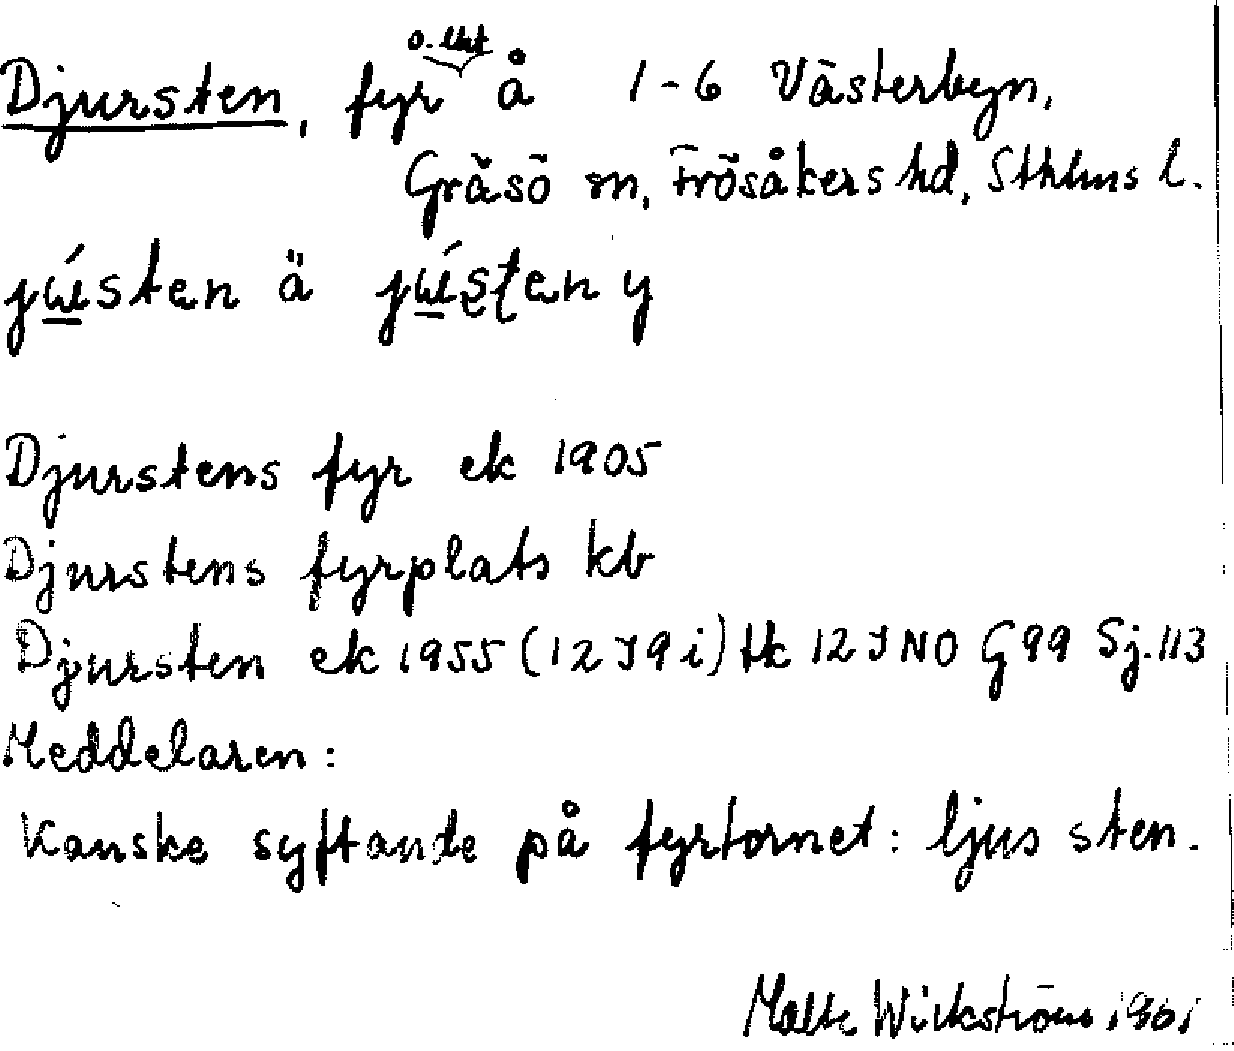 Djursten, fyr o. Unt å 1-6 Västerbyn,
Gräsö sn, Frösåkers hd, Sthlms l.
ä y
Djurstens fyr ek 1905
Djurstens fyrplats kb
Djursten ek 1955 (12 I 9 i) tk 12 I NO G 99 Sj. 113
Meddelaren:
Kanske syftande på fyrtornet: ljus sten.
Malte Wickström 1961